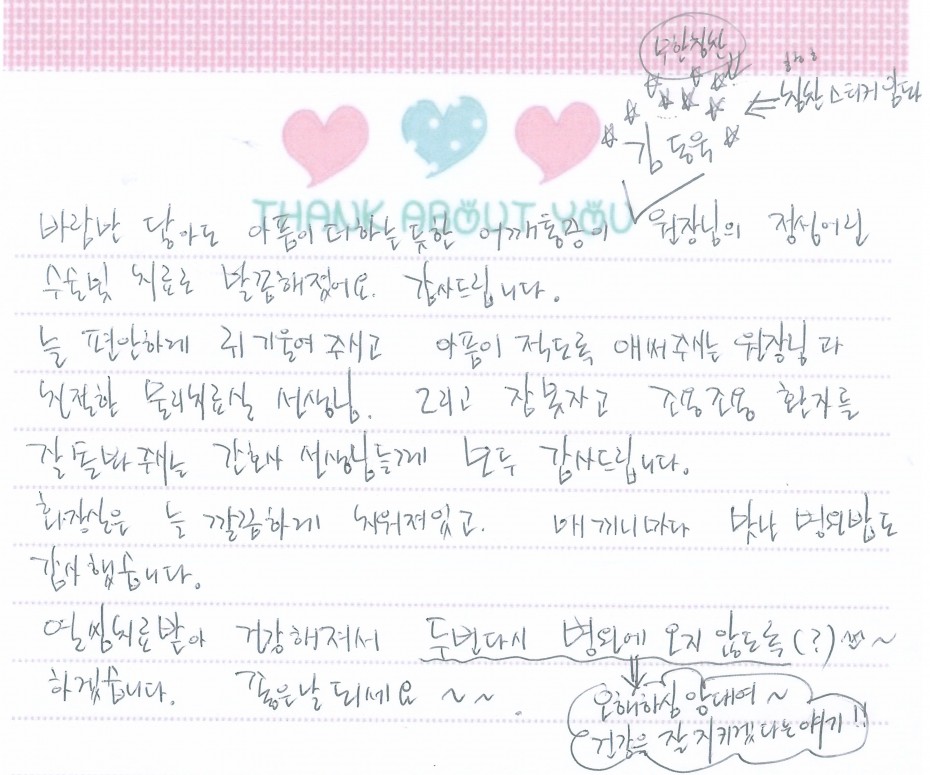 무한칭찬
하하
칭찬 스티커 랍니다
김동욱
THANK ABOUT YOU
바람만 닿아도 아픔이 더하는 듯한 어깨통증이 원장님의 정성어린
수술및 치료로 말끔해졌어요. 감사드립니다.
늘 편안하게 귀 기울여 주시고 아픔이 적도록 애써주시는 원장님과
친절한 물리치료실 선생님. 그리고 잠 못자고 조용조용 환자를
잘 돌봐주시는 간호사 선생님들께 모두 감사드립니다.
화장실은 늘 깔끔하게 치워져있고. 매 끼니마다 맛난 병원밥도
감사했습니다.
열씸치료받아 건강해져서 두번다시 병원에 오지 않도록 (?) ^^ ~
하겠습니다. 좋은날 되세요 ~ ~.
오해하심 앙대여 ~
건강을 잘 지키겠다는 얘기!!